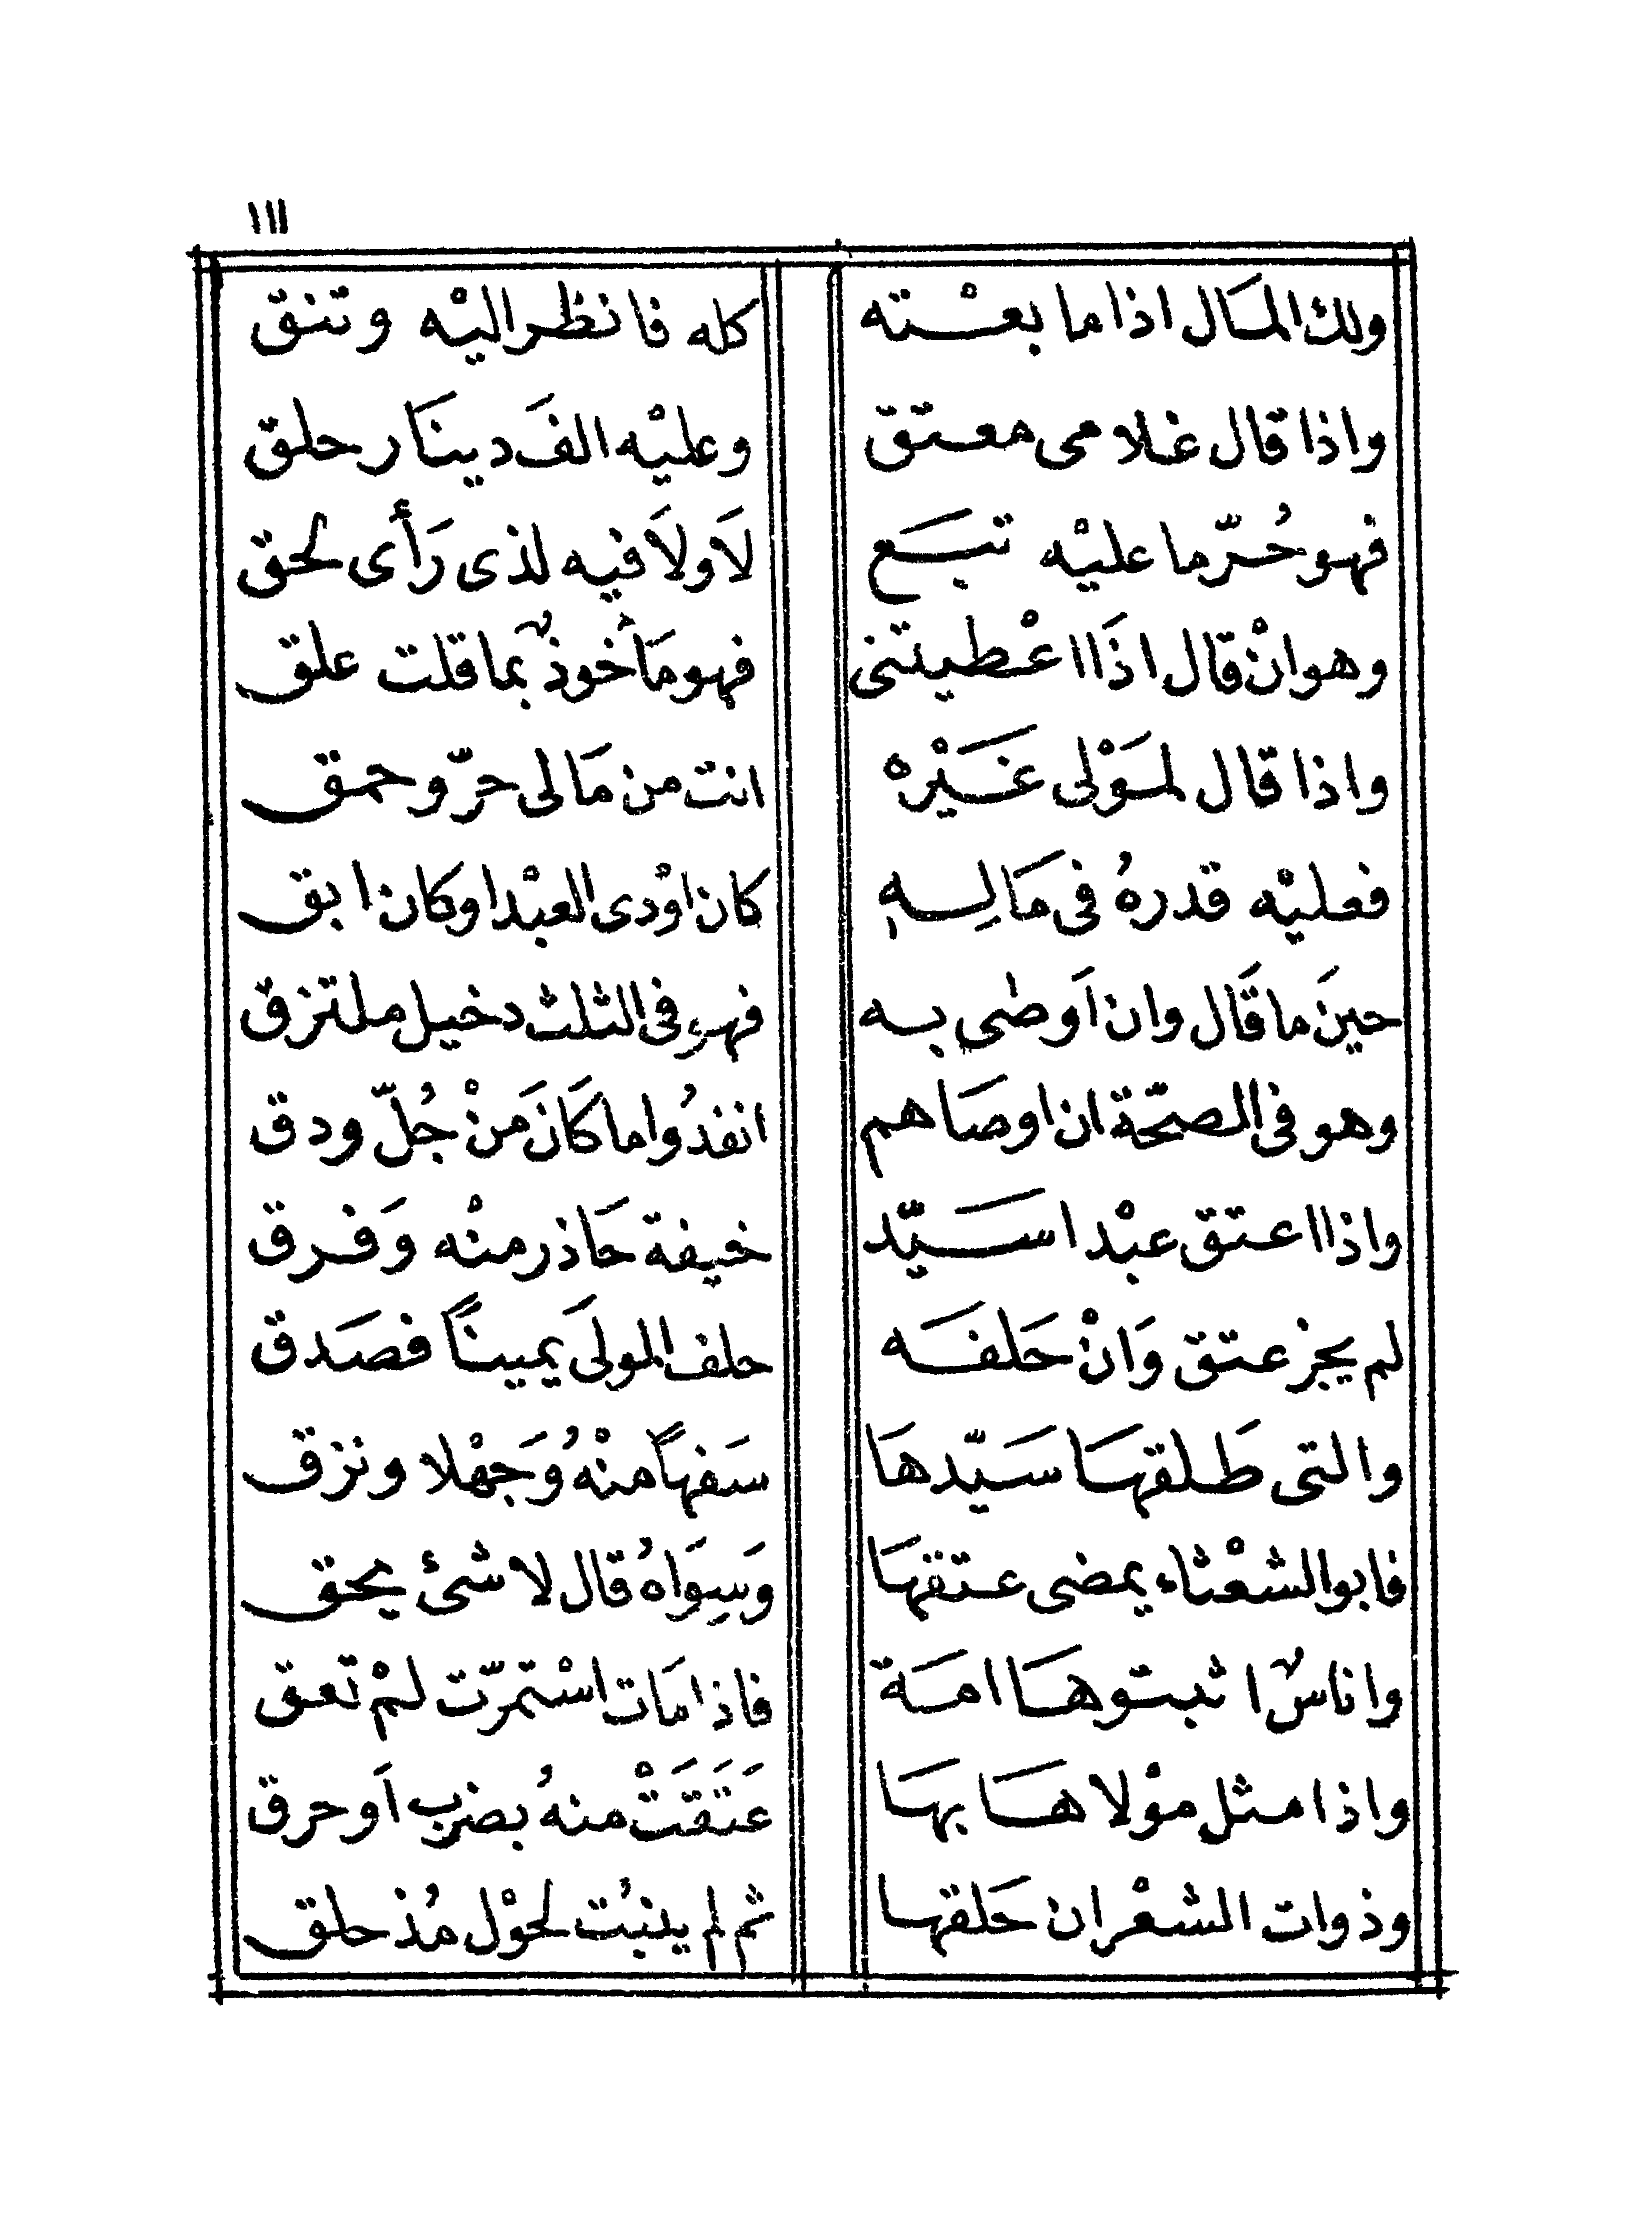 ١١١
ولك المَال اذا ما بعْته كله فانظر اليْه وتنق
واذا قال غلامى معتق وعليْه الفَ دينَار حلق
فهو حُرّ ما عليْه تبَع لَا ولَا فيه لذى رَأَى لحق
وهو انْ قال اذَا اعْطيتنى فهو مَأخوذٌ بما قلت علق
واذا قال لمَوْلى غَيْره انت من مَالى حرّ وحمق
فعليْه قدرهُ فى مَالِهِ كان اوْدى العبْد او كان ابق
حينَ ما قَال وان اَوصٰى به فهو فى الثلث دخيل ملتزق
وهو فى الصحّة ان اوصَاهم انفدُوا ما كَانَ مَنْ جُلّ ودق
واذا اعتق عبْدا سَيّد خيفة حَاذر منْه وَفرق
لم يجز عتق وَانْ حَلفَه حلف المولَى يَمينًا فصَدق
والتى طَلقهَا سَيّدهَا سَفهًا منْهُ وَجهْلا ونزق
فابو الشعْثاء يمضى عتقهَا وَسِوَاهُ قال لا شئ يحق
واناسٌ اثبتوهَا امَة فاذا مَات اسْتمرّت لمْ تعق
واذا مثل موْلاهَا بهَا عَتَقَتْ منهُ بضرب اَو حرق
وذوات الشعْر ان حَلقهَا ثم لم ينبُت لحوْل مُذ حلق